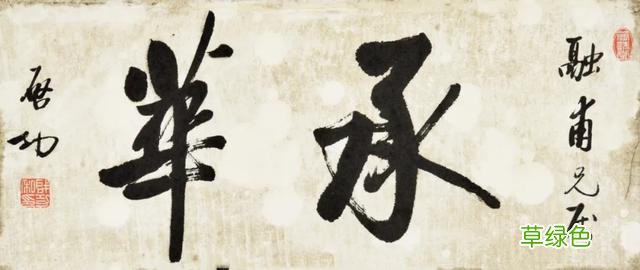 融甫兄
承華
啟功
草绿色